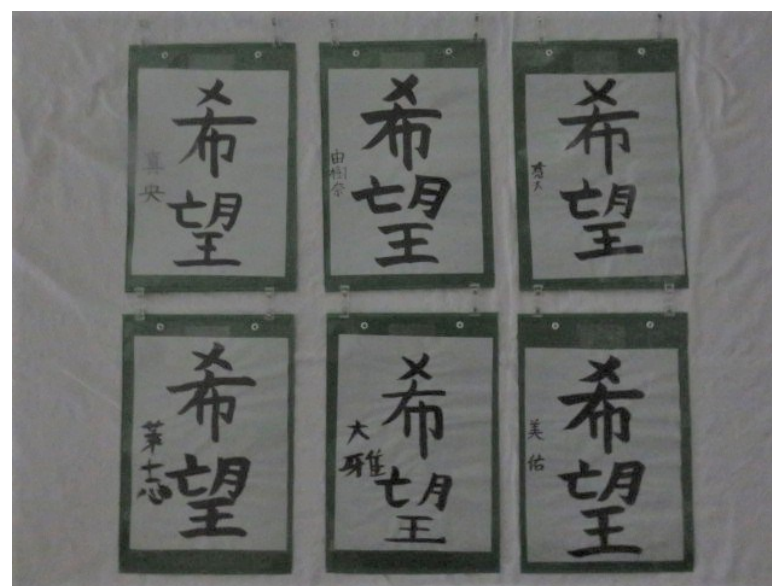 希望
真央
希望
由樹奈
希望
希望
希望
大雅
希望
美佑